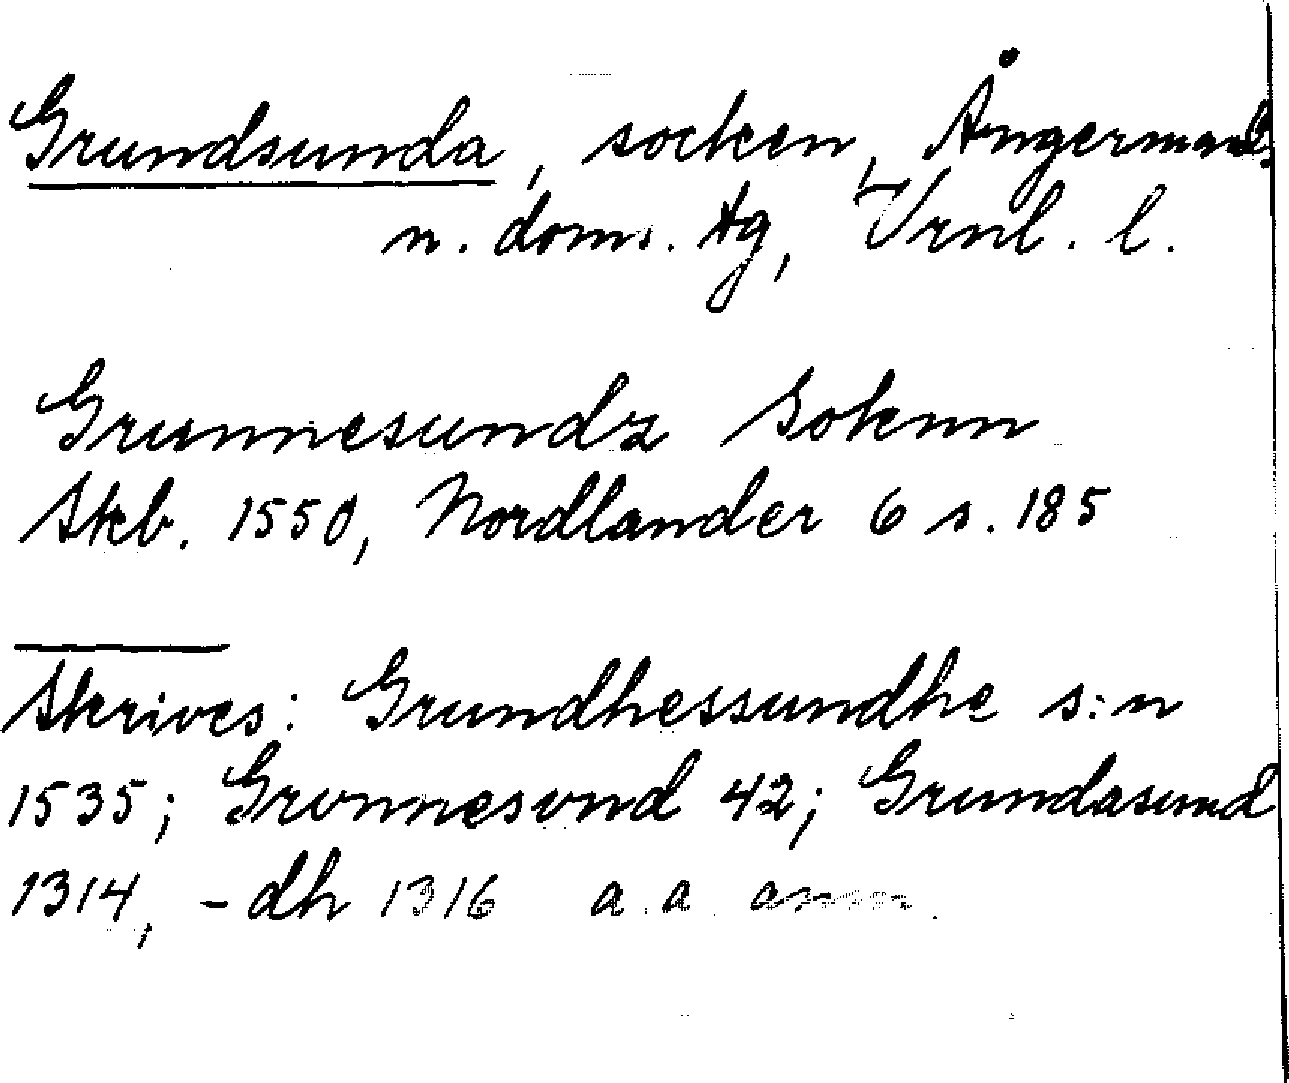 Grundsunda, socken, Ångermanl.
n. doms. tg, Vrnl. l.
Grunnesundz Soknn
Skb. 1550, Nordlander 6 s. 185
Skrives: Grundhessundhe s:n
1535; Grvnnesvnd 42; Grundasund
1314, -dh 1316 a. a. anm.